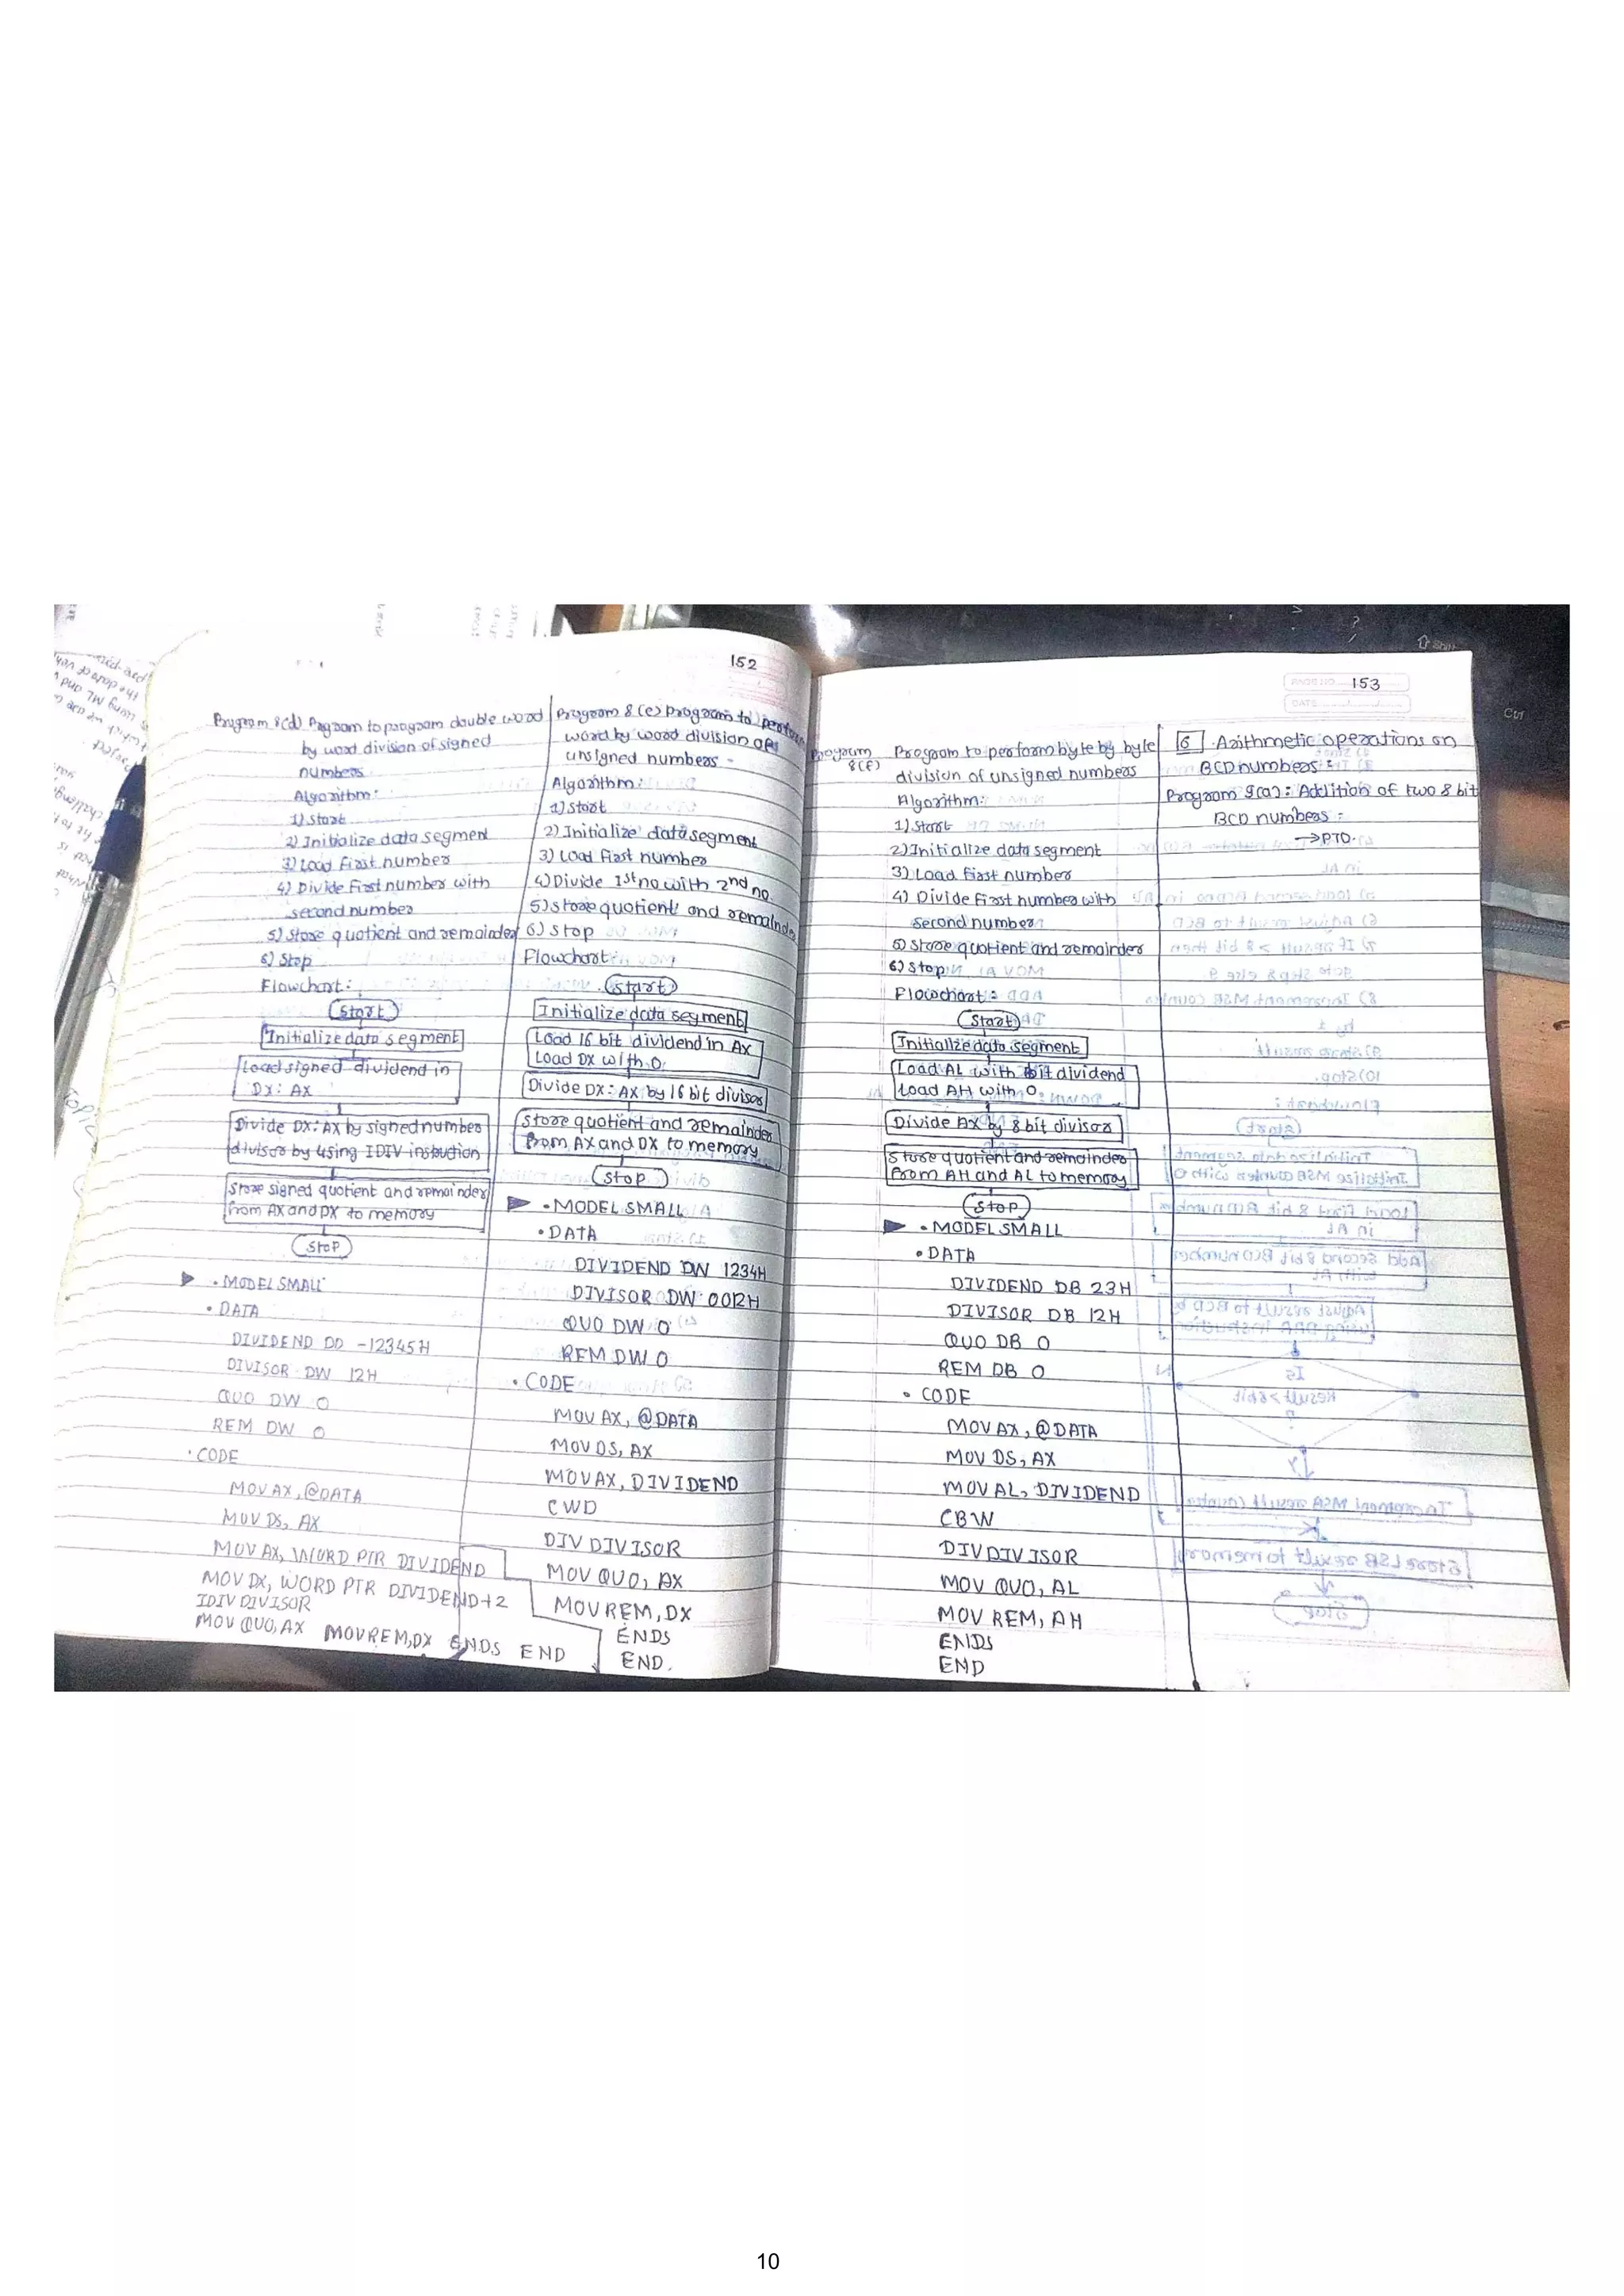 152
Program 8(d) Program to program double word
by word division of signed
numbers
Algorithm:
1) Start
2) Initialize data segment
3) Load First number
4) Divide First number with
second number
5) Store quotient and remainder
6) Stop
Flowchart:
Start
Initialize data segment
Load signed dividend in
DX: AX
Divide DX: AX by signed number
divisor by using IDIV instruction
Store signed quotient and remainder
from AX and DX to memory
Stop
.MODEL SMALL
.DATA
DIVIDEND DD -12345H
DIVISOR DW 12H
QUO DW 0
REM DW 0
.CODE
MOV AX, @DATA
MOV DS, AX
MOV AX, WORD PTR DIVIDEND
MOV DX, WORD PTR DIVIDEND+2
IDIV DIVISOR
MOV QUO, AX MOV REM, DX ENDS END
Program 8(e) Program to perform
word by word division of
unsigned numbers -
Algorithm:
1) Start
2) Initialize data segment
3) Load First number
4) Divide 1st no with 2nd no.
5) Store quotient and remainder
6) Stop
Flowchart:
Start
Initialize data segment
Load 16 bit dividend in AX
Load DX with 0.
Divide DX: AX by 16 bit divisor
Store quotient and remainder
from AX and DX to memory
Stop
.MODEL SMALL
.DATA
DIVIDEND DW 1234H
DIVISOR DW 0012H
QUO DW 0
REM DW 0
.CODE
MOV AX, @DATA
MOV DS, AX
MOV AX, DIVIDEND
CWD
DIV DIVISOR
MOV QUO, AX
MOV REM, DX
ENDS
END.
PAGE NO. 153
DATE
Program 8(f) Program to perform byte by byte
division of unsigned numbers
Algorithm:
1) Start
2) Initialize data segment
3) Load first number
4) Divide First number with
second number
5) Store quotient and remainder
6) Stop
Flowchart:
Start
Initialize data segment
Load AL with 8 bit dividend
Load AH with 0
Divide AX by 8 bit divisor
Store quotient and remainder
from AH and AL to memory
Stop
.MODEL SMALL
.DATA
DIVIDEND DB 23H
DIVISOR DB 12H
QUO DB 0
REM DB 0
.CODE
MOV AX, @DATA
MOV DS, AX
MOV AL, DIVIDEND
CBW
DIV DIVISOR
MOV QUO, AL
MOV REM, AH
ENDS
END
6 Arithmetic operations on
BCD numbers:
Program 9(a): Addition of two 8 bit
BCD numbers:
→PTO.
10